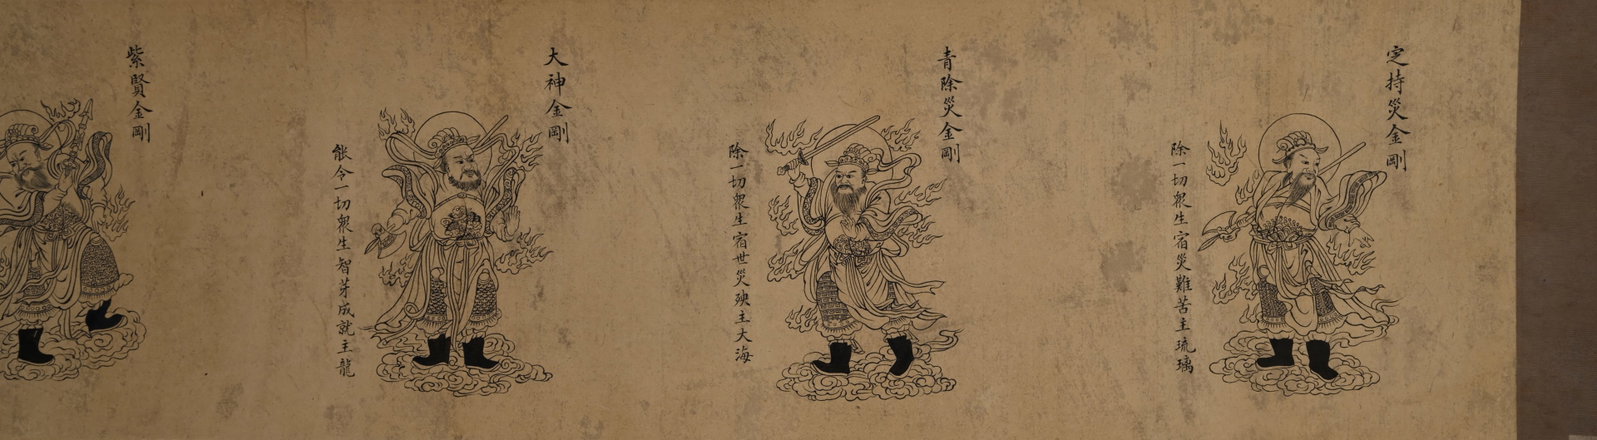 定持災金剛
除一切衆生宿災難苦主琉璃
青除災金剛
除一切衆生宿世災殃主大海
大神金剛
能令一切衆生智芽成就主龍
紫賢金剛